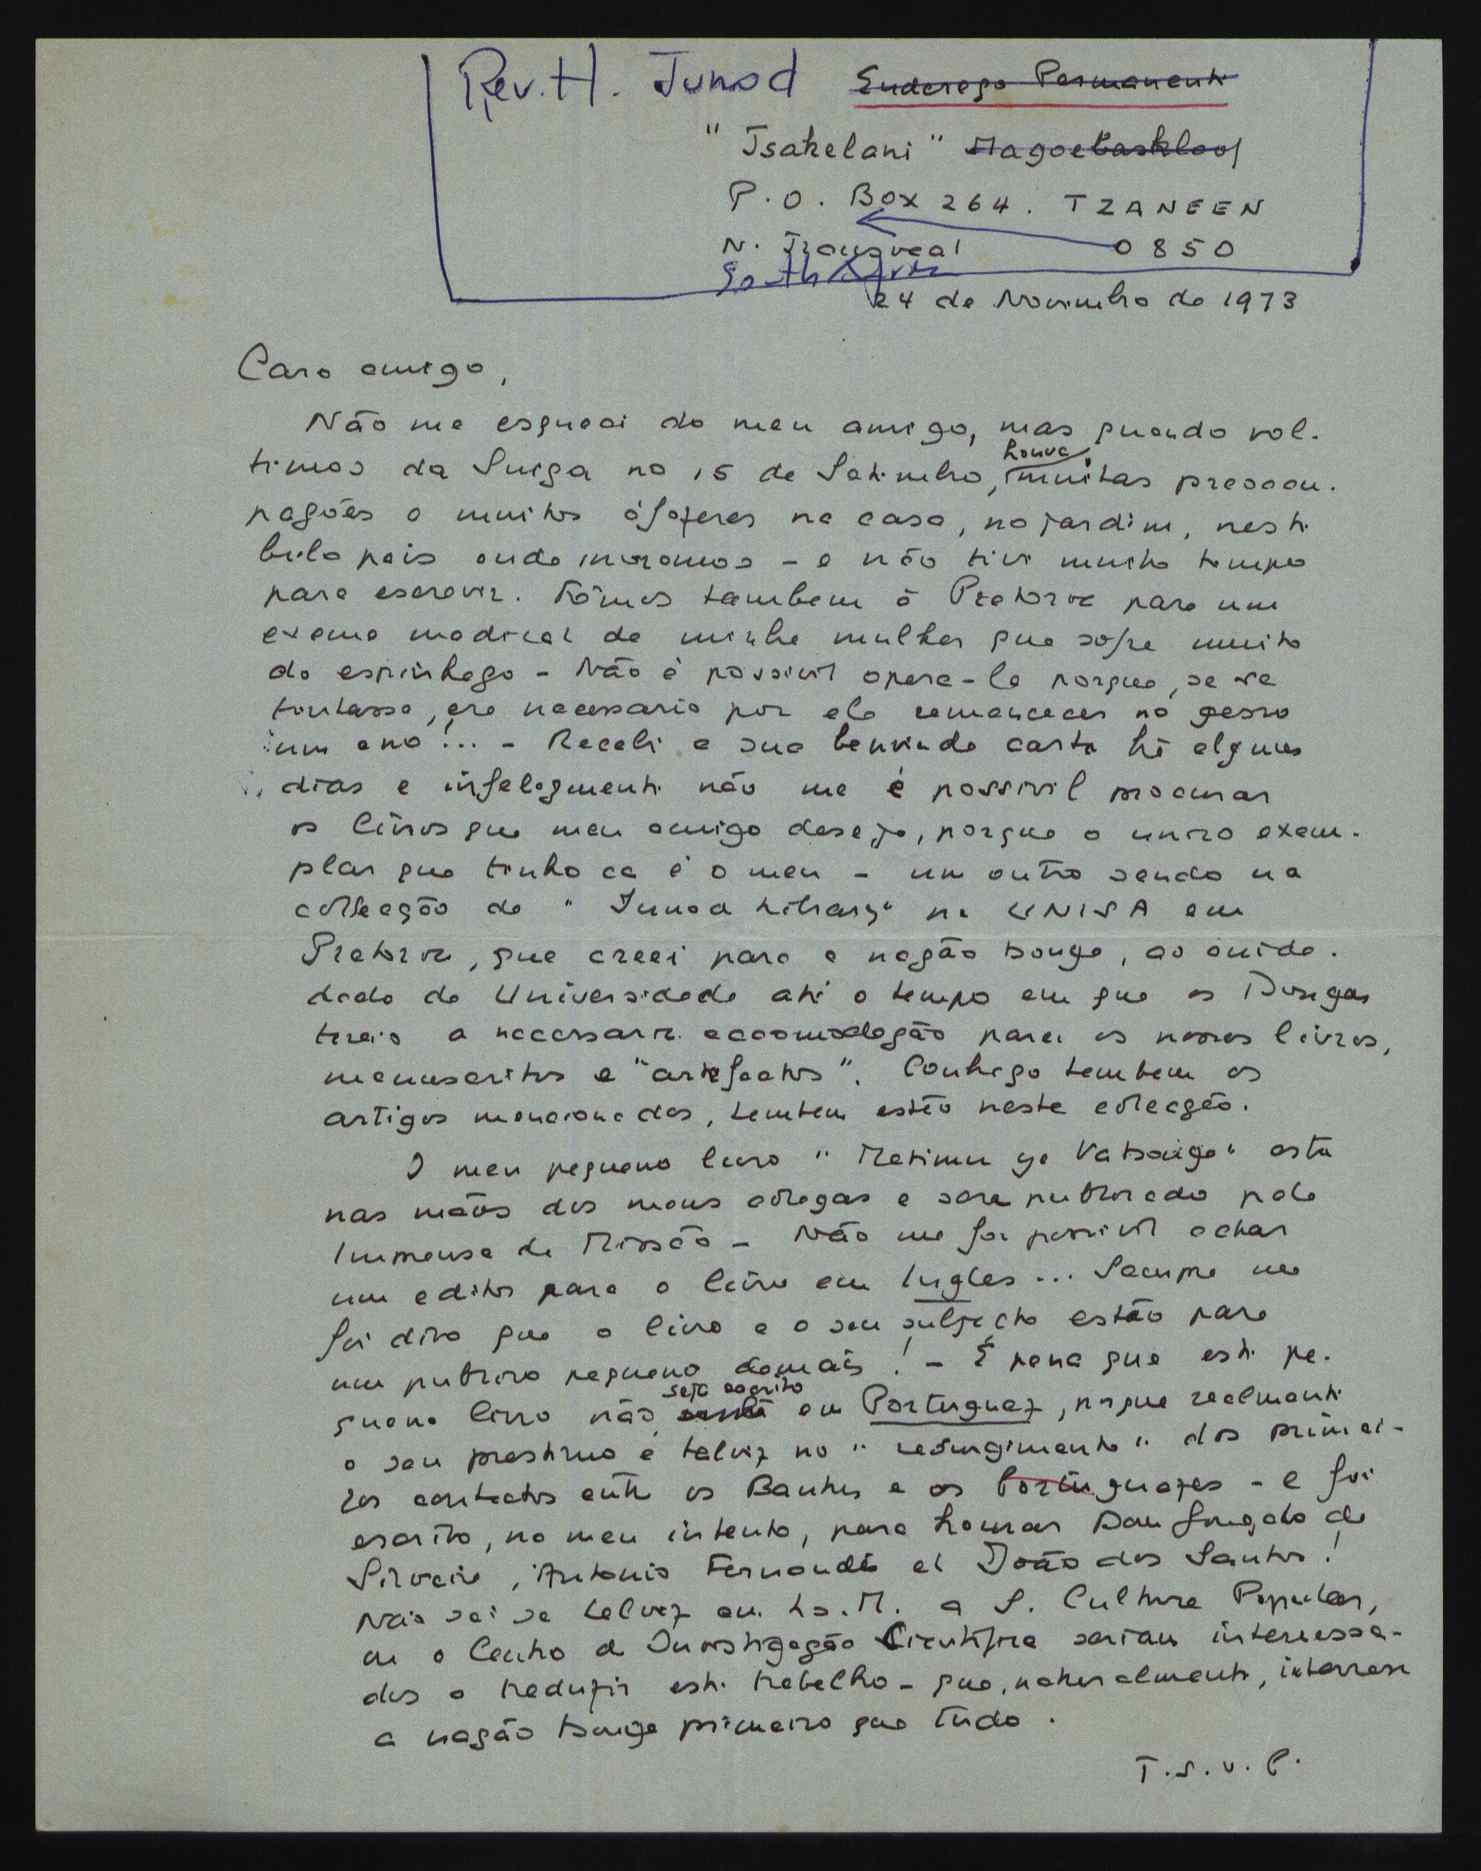 Rev. H. Junod Endereço Permanente
"Tsakelani" Magoebaskloof
P.O. Box 264. TZANEEN
N. Transvaal 0850
South Africa
24 de Novembro de 1973
Caro amigo,
Não me esqueci do meu amigo, mas quando vol-
timos da Suiça no 15 de Setembro, houve muitas preoccu-
pações e muitos áfazeres na casa, no jardim, neste
belo pais onde moramos - e não tive muito tempo
para escrever. Fômos tambem á Pretoria para um
exame medical de minha mulher que sofre muito
do espinhaço - Não é possivel opera-la porque, se se
tentasse, era necessario por ela remanecer no gesso
um ano!... - Recebi a sua benvinda carta há algumas
dias e infelizmente não me é possivel procurar
os livros que meu amigo deseja, porque o unico exem-
plar que tenho ca é o meu - um outro sendo na
collecção do "Junod Library" na UNISA em
Pretoria, que creei para a nação tsonga, ao cuida-
dado da Universidade até o tempo em que os Tsongas
terão a necessaria accomodação para os nossos livros,
manuscritos e "artefactos". Conheço tambem os
artigos mencionados, tambem estão neste colecção.
O meu pequeno livro "Matimu ya Vatsonga" esta
nas mãos dos meus colegas e sera publicado pela
Imprensa da Missão - Não me foi possivel achar
um editor para o livro em Ingles... Sempre me
foi dito que o livro e o seu subjecto estão para
um publico pequeno demais! - É pena que este pe-
queno livro não seja escrito em Portuguez, porque realmente
o seu prestimo é talvez no "resurgimento" dos primei-
ros contactos entre os Bantus e os Portuguezes - e foi
escrito, no meu intento, para honrar Dom Gonçalo da
Silveira, Antonio Fernandes et João dos Santos!
Não sei se talvez em L.M. a S. Cultura Popular,
ou o Centro de Investigação Cientifica seriam interessa-
dos a traduzir este trabalho - que, naturalmente, interressa
a nação tsonga primeiro que tudo.
T.S.V.P.